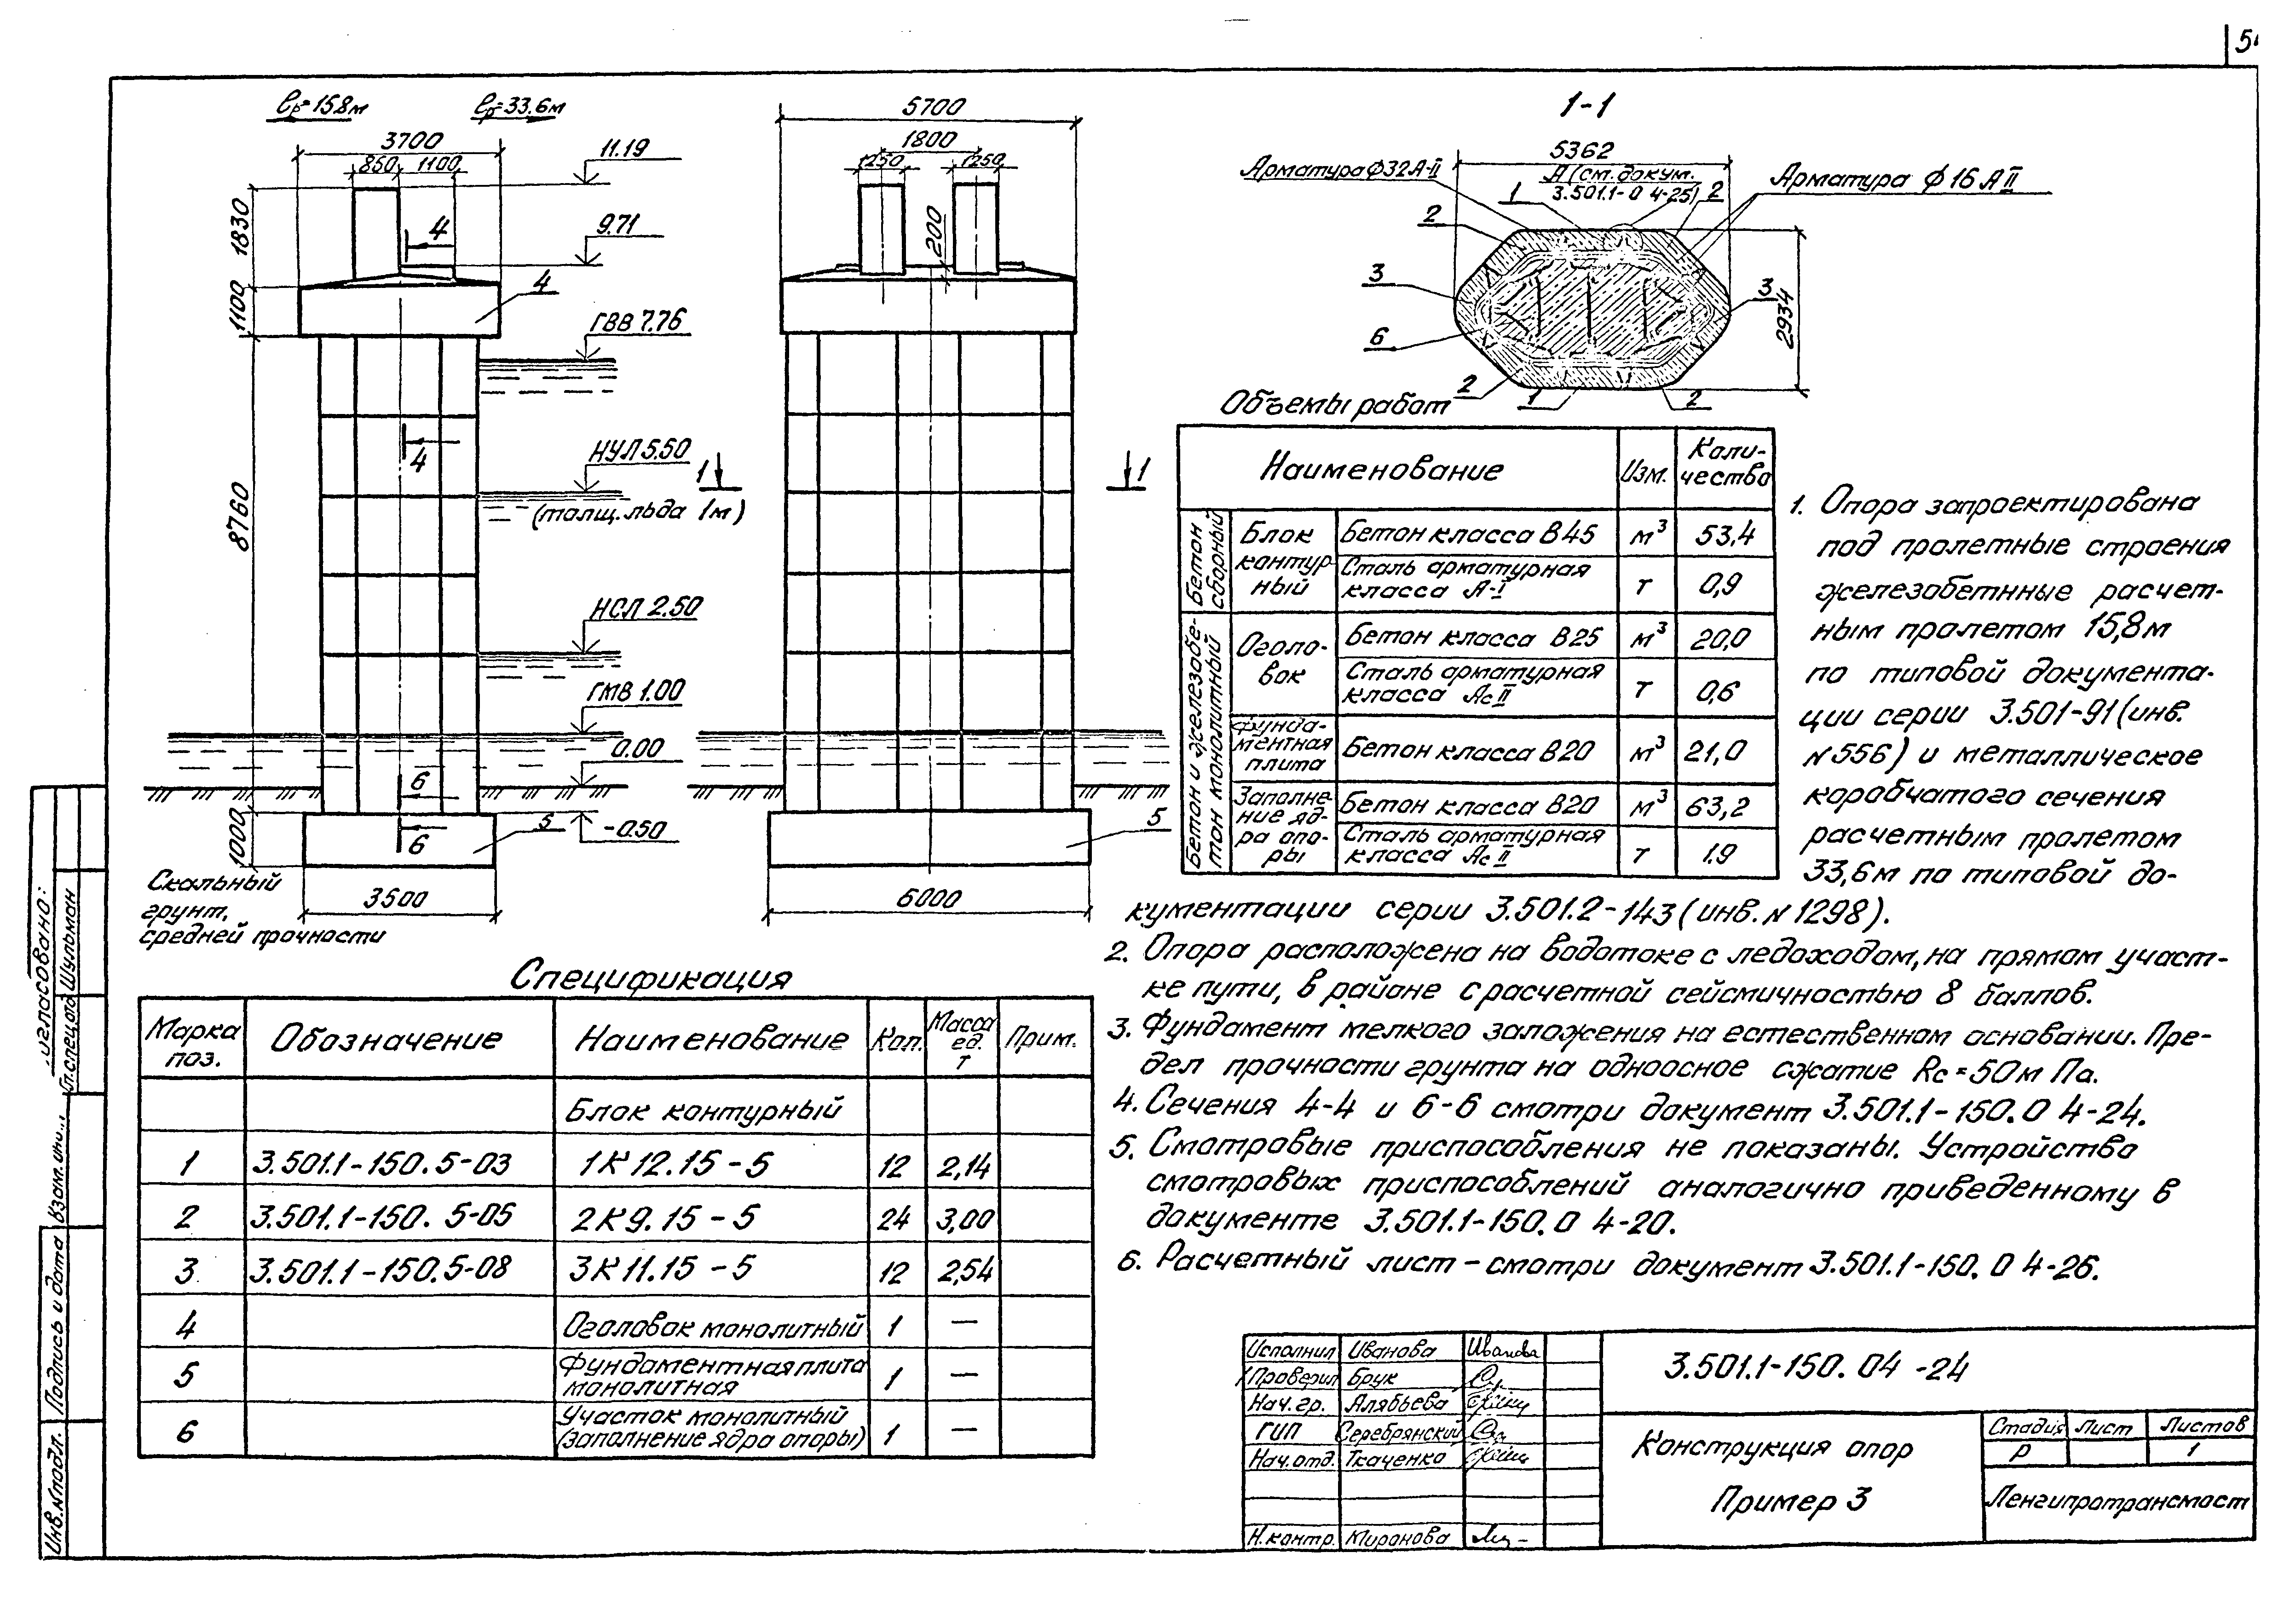 5
ℓр=15.8м
ℓр=33.6м
3700
850
1100
11.19
9.71
1830
1100
8760
1000
4
4
4
ГВВ 7.76
НУЛ 5.50
(толщ. льда 1м)
НСЛ 2.50
ГМВ 1.00
0.00
-0.50
6
6
5
3500
Скальный
грунт,
средней прочности
5700
1800
1250
1250
200
1
1
5
6000
1-1
5362
А (см. докум.
3.501.1-0 4-25)
Арматура Ф32 А-II
Арматура Ф 16 А II
1
2
2
3
3
6
2
1
2
2934
Объемы работ
Наименование
Изм.
Коли-
чество
Бетон
сборный
Блок
контур-
ный
Бетон класса В45
м³
53,4
Сталь арматурная
класса А-I
т
0,9
Бетон и железобе-
тон монолитный
Оголо-
вок
Бетон класса В25
м³
20,0
Сталь арматурная
класса Ас II
т
0,6
Фунда-
ментная
плита
Бетон класса В20
м³
21,0
Заполне-
ние яд-
ра опо-
ры
Бетон класса В20
м³
63,2
Сталь арматурная
класса Ас II
т
1.9
1. Опора запроектирована
под пролетные строения
железобетнные расчет-
ным пролетом 15,8м
по типовой документа-
ции серии 3.501-91 (инв.
N556) и металлическое
коробчатого сечения
расчетным пролетом
33,6м по типовой до-
кументации серии 3.501.2-143 (инв. N1298).
2. Опора расположена на водотоке с ледоходом, на прямом участ-
ке пути, в районе с расчетной сейсмичностью 8 баллов.
3. Фундамент мелкого заложения на естественном основании. Пре-
дел прочности грунта на одноосное сжатие Rc=50м Па.
4. Сечения 4-4 и 6-6 смотри документ 3.501.1-150.0 4-24.
5. Смотровые приспособления не показаны. Устройство
смотровых приспособлений аналогично приведенному в
документе 3.501.1-150.0 4-20.
6. Расчетный лист-смотри документ 3.501.1-150.0 4-26.
Спецификация
Марка
поз.
Обозначение
Наименование
Кол.
Масса
ед.
т
Прим.
Блок контурный
1
3.501.1-150.5-03
1К12.15-5
12
2,14
2
3.501.1-150.5-05
2К9.15-5
24
3,00
3
3.501.1-150.5-08
3К11.15-5
12
2,54
4
Оголовок монолитный
1
—
5
Фундаментная плита
монолитная
1
—
6
Участок монолитный
(заполнение ядра опоры)
1
—
Исполнил Иванова Иванова
Проверил Брук
Нач. гр. Алябьева
ГИП Серебрянский
Нач. отд. Ткаченко
Н. контр. Миронова
3.501.1-150.04-24
Конструкция опор
Пример 3
Стадия
Лист
Листов
Р
1
Ленгипротрансмост
Шульман
Инв. N подл.
Подпись и дата
Взам. инв.